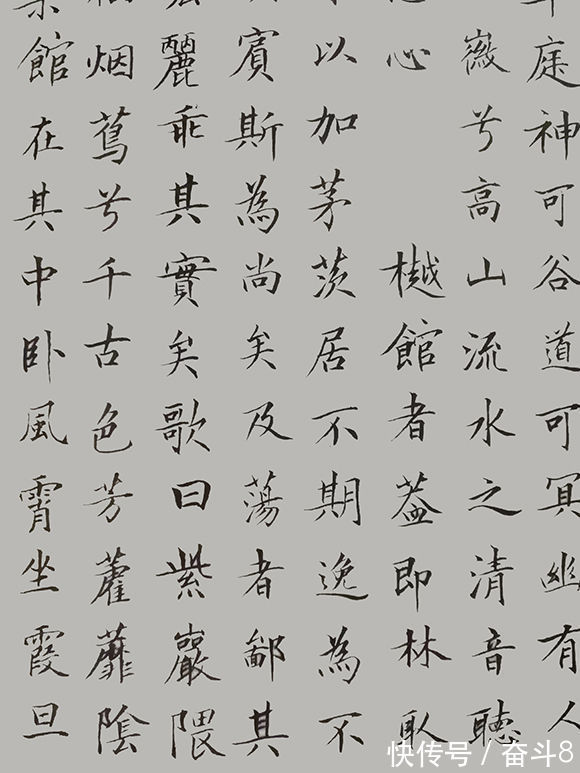 庭神可谷道可冥幽有人
徽兮高山流水之清音聽
心　樾館者葢即林取
以加茅茨居不期逸為不
賓斯為尚矣及蕩者鄙其
麗乖其實矣歌曰紫巖隈
烟蔦兮千古色芳藿蘼陰
館在其中卧風霄坐霞旦
快传号 / 奋斗8